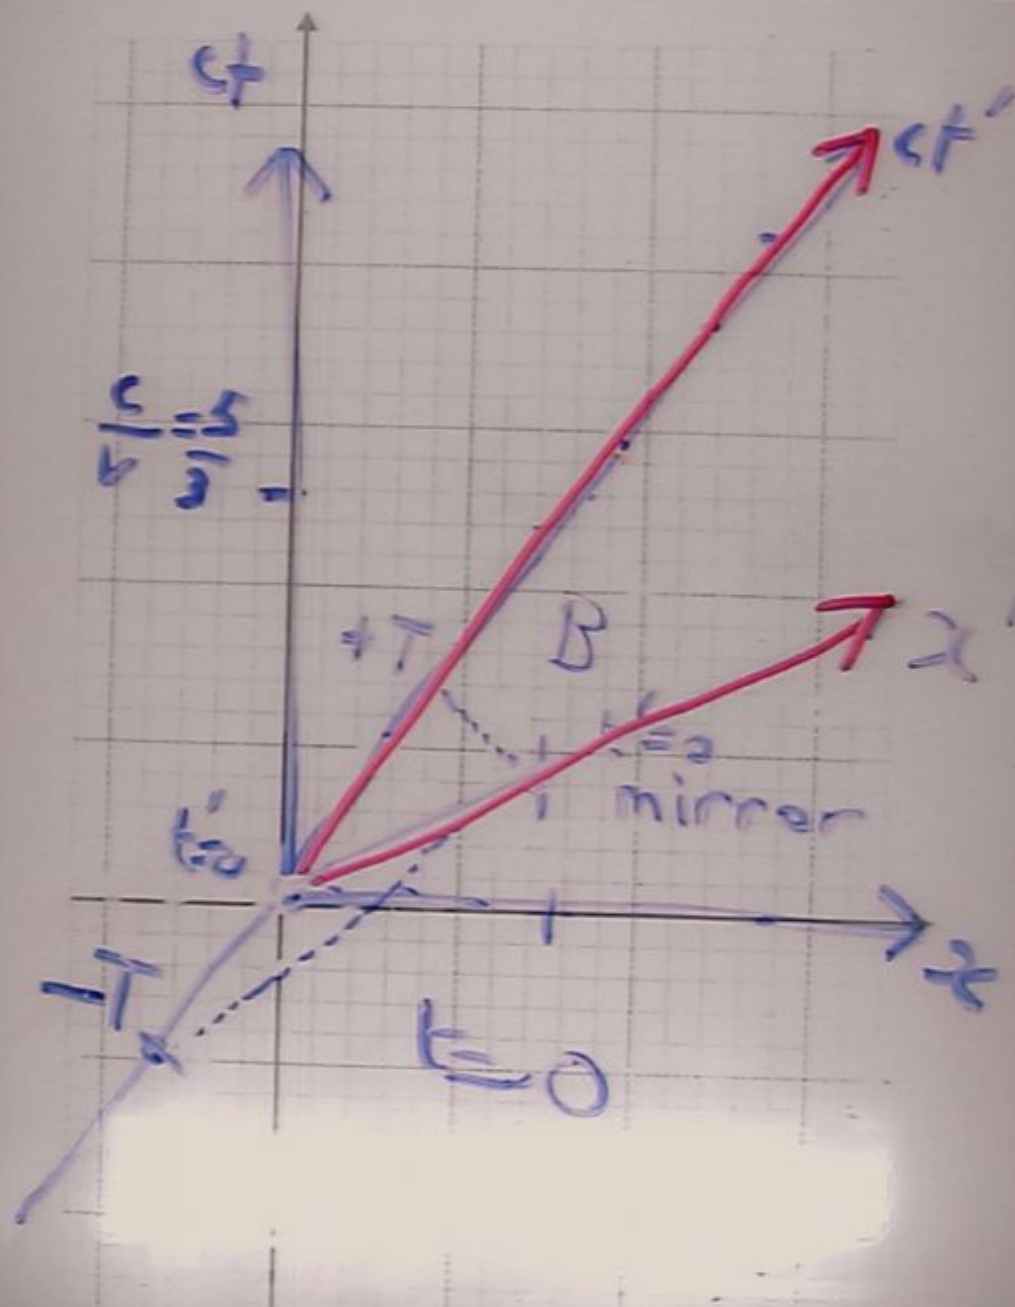 ct
ct'
c/v = 5/3
+T
B
x'
t'=0
mirror
t'=0
-T
x
t=0